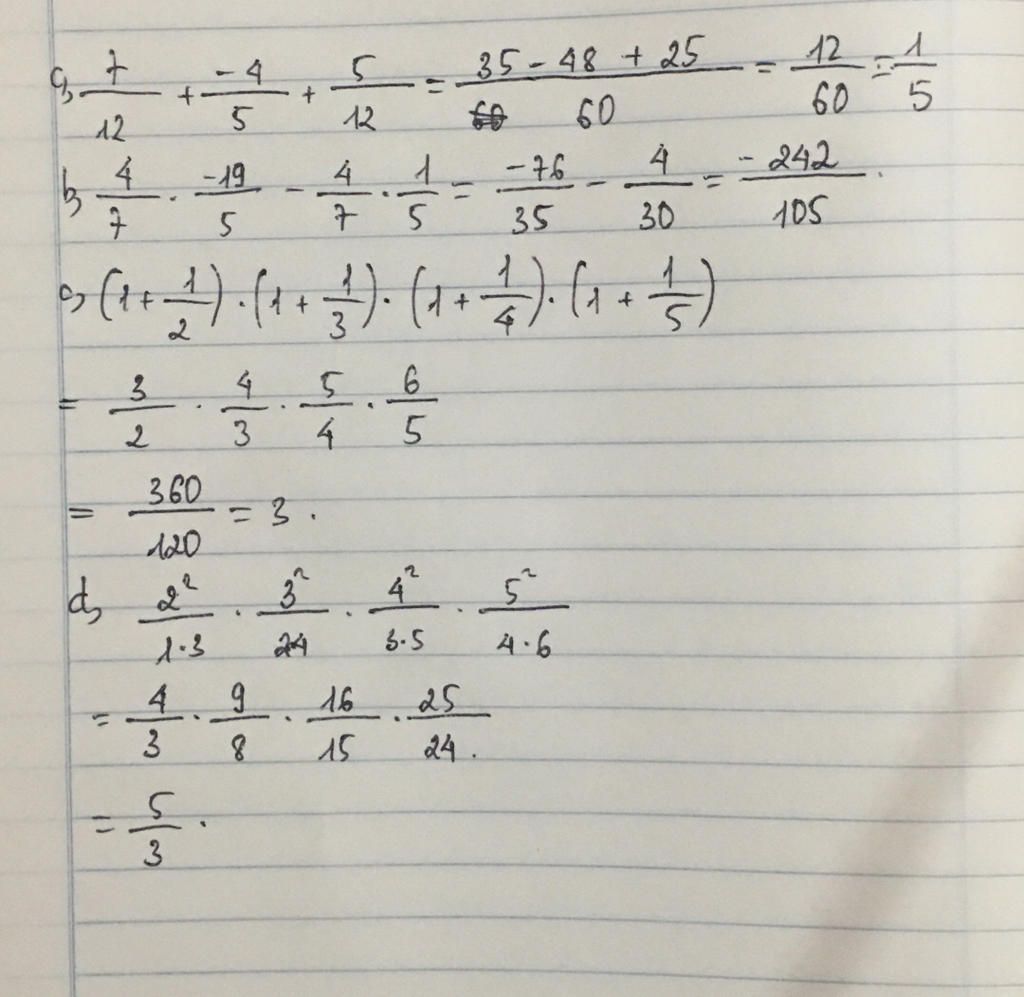 a, 7/12 + -4/5 + 5/12 = (35 - 48 + 25)/60 = 12/60 = 1/5
b, 4/7 . -19/5 - 4/7 . 1/5 = -76/35 - 4/30 = -242/105 .
c, (1 + 1/2) . (1 + 1/3) . (1 + 1/4) . (1 + 1/5)
= 3/2 . 4/3 . 5/4 . 6/5
= 360/120 = 3 .
d, 2²/1.3 . 3²/24 . 4²/3.5 . 5²/4.6
= 4/3 . 9/8 . 16/15 . 25/24 .
= 5/3 .